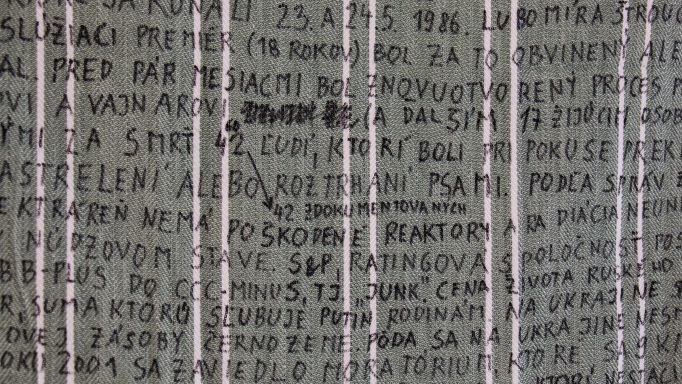 SA KONALI 23. A 24.5. 1986. ĽUBOMÍRA ŠTROUG
SLÚŽIACI PREMIÉR (18 ROKOV) BOL ZA TO OBVINENÝ ALE
AL. PRED PÁR MESIACMI BOL ZNOVUOTVORENÝ PROCES
OVI A VAJNAROVI (A ĎALŠÍM 17 ŽIJÚCIM OSOB
ÝMI ZA SMRŤ 42 ĽUDÍ, KTORÍ BOLI PRI POKUSE PREK
ASTRELENÍ ALEBO ROZTRHANÍ PSAMI. PODĽA SPRÁV Z
42 ZDOKUMENTOVANÝCH
EKTRÁREŇ NEMÁ POŠKODENÉ REAKTORY A RADIÁCIA NEUNI
V NÚDZOVOM STAVE. S&P, RATINGOVÁ SPOLOČNOSŤ POS
BB-PLUS DO CCC-MINUS, TJ. "JUNK". CENA ŽIVOTA RUSKÉHO
R, SUMA KTORÚ SĽUBUJE PUTIN RODINÁM, NA UKRAJINE
OVEJ ZÁSOBY ČERNOZEME. PÔDA SA NA UKRAJINE NESM
OKU 2001 SA ZAVIEDLO MORATÓRIUM, KTORÉ SA 9 K
KTORÍ NESTAČI